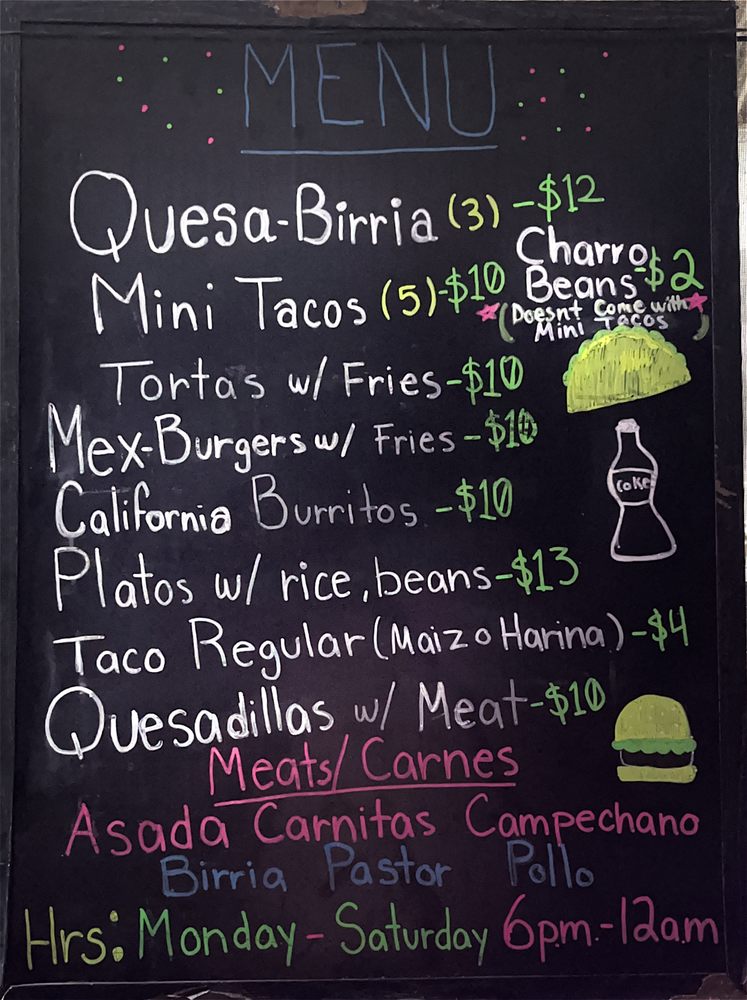 MENU
Quesa-Birria (3) -$12
Mini Tacos (5)-$10
Charro
Beans-$2
(Doesnt Come with
Mini Tacos)
Tortas w/ Fries-$10
Mex-Burgers w/ Fries-$10
California Burritos -$10
Coke
Platos w/ rice, beans-$13
Taco Regular (Maiz o Harina)-$4
Quesadillas w/ Meat-$10
Meats/Carnes
Asada Carnitas Campechano
Birria Pastor Pollo
Hrs: Monday - Saturday 6pm.-12am